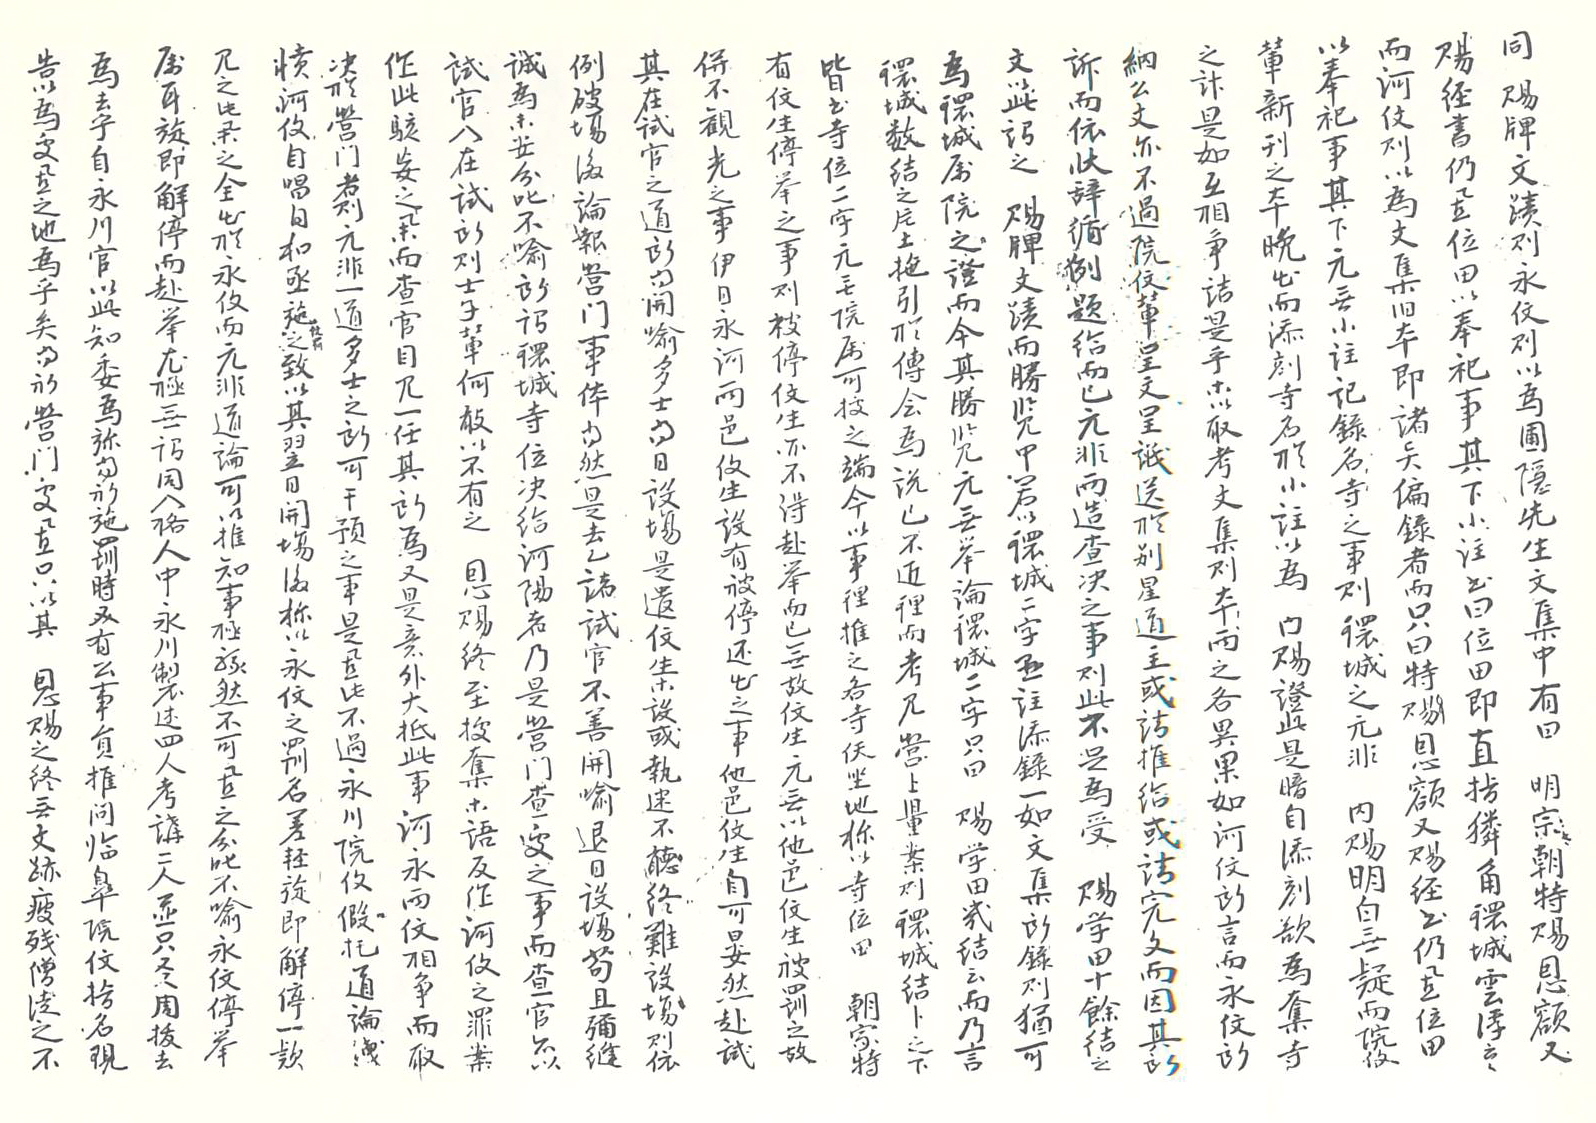 同 賜牌文蹟則永伩則以為圃隱先生文集中有曰 明宗朝特賜恩額又
賜經書仍置位田以奉祀事其下小注書曰位田即直指獜角環城雲浮云
而河伩則以為文集旧本即諸矣偏錄者而只曰特賜恩額又賜經書仍置位田
以奉祀事其下元無小注記錄名寺之事則環城之元非 內賜明白無疑而院伩
輩新刊之本晩出而添刻寺名於小註以為 內賜證此是暗自添刻欲為奪寺
之計是如互相爭詰是乎旀以取考文集則本兩之各異果如河伩所言而永伩所
納公文亦不過院伩輩呈文呈議送於別星道主或請推給或請完文而因其所
訴而依狀辭循例題給而已元非而造查決之事則此不足為受 賜学田十餘結之
文以此謂之 賜牌文蹟而勝覧中若以環城二字並註添錄一如文集所錄則猶可
為環城属院之證而今其勝覧元無举論環城二字只曰 賜学田幾結云而乃言
環城数結之庄土拖引於傳会為說已不近裡而考見營上量案則環城結卜之下
皆書寺位二字元無院属可據之端今以事裡推之各寺伏坐地称以寺位田 朝家特
有伩生停举之事則被停伩生亦不得赴举而已無故伩生元無以他邑伩生被罰之故
併不観光之事伊日永河两邑伩生設有被停还出之事他邑伩生自可晏然赴試
其在試官之道所當開喩多士當日設場是遣伩生設或執迷不聽終難設場則依
例破場後論報營门事体當然是去乙諸試官不善開喩退日設場苟且彌縫
誠為未安分叱不喩所謂環城寺位決給河陽者乃是營门查処之事而查官亦以
試官入在試所則士子輩何敢以不有之 恩賜終至攘奪等語反作河伩之罪案
作此駭妄之舉而查官目見一任其所為又是意外大抵此事河永两伩相争而取
決於營门者則元非一道多士之所可干預之事是置此不過永川院伩假托道論洩
憤河伩自唱自和亟施之致以其翌日開場後称以永伩之罰名差輕旋即解停一款
見之此举之全出於永伩而元非道論可以推知事極駭然不可置之分叱不喩永伩停举
属耳旋即解停而赴举尤極無謂同入格人中永川製述四人考講二人並只爲周拔去
為去乎自永川官以此知委為旀當初施罰時及有公事負推问臨皐院伩摘名現
告以為処置之地為乎矣當初營门処置只以其 恩賜之終無文跡疲殘僧徒之不